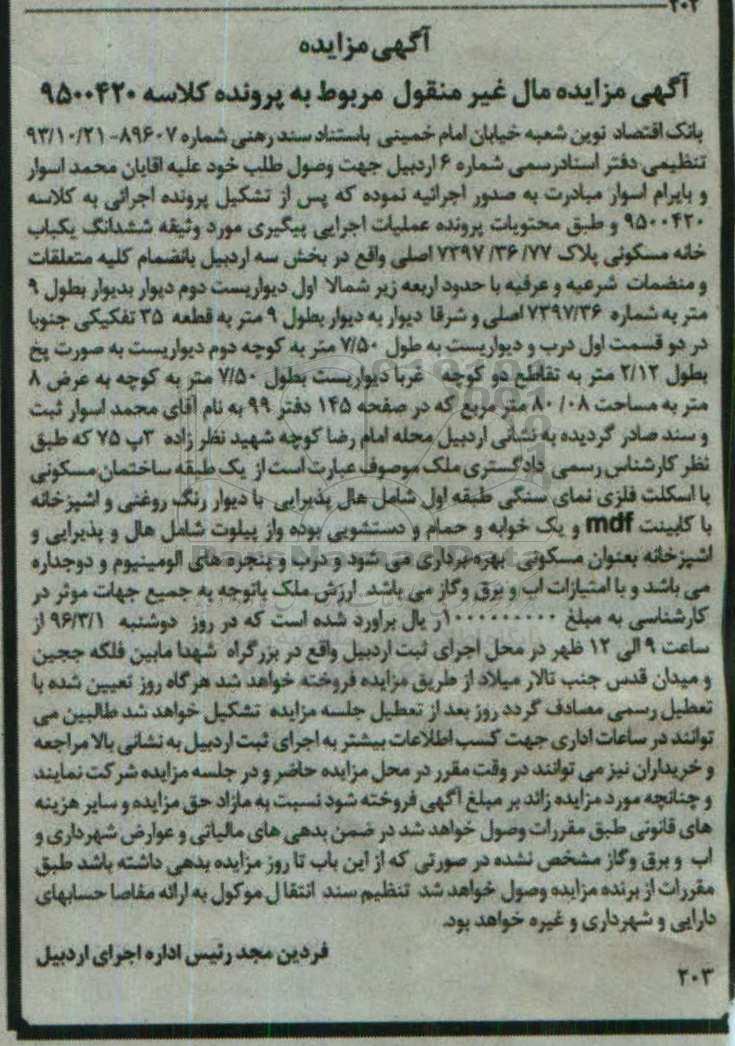 ۲۰۲
آگهی مزایده
آگهی مزایده مال غیر منقول مربوط به پرونده کلاسه ۹۵۰۰۴۲۰
بانک اقتصاد نوین شعبه خیابان امام خمینی باستناد سند رهنی شماره ۸۹۶۰۷-۹۳/۱۰/۲۱
تنظیمی دفتر اسنادرسمی شماره ۶ اردبیل جهت وصول طلب خود علیه اقایان محمد اسوار
و بایرام اسوار مبادرت به صدور اجرائیه نموده که پس از تشکیل پرونده اجرائی به کلاسه
۹۵۰۰۴۲۰ و طبق محتویات پرونده عملیات اجرایی پیگیری مورد وثیقه ششدانگ یکباب
خانه مسکونی پلاک ۷۷/ ۳۶/ ۷۳۹۷ اصلی واقع در بخش سه اردبیل بانضمام کلیه متعلقات
و منضمات شرعیه و عرفیه با حدود اربعه زیر شمالا اول دیواریست دوم دیوار بدیوار بطول ۹
متر به شماره ۷۳۹۷/۳۶ اصلی و شرقا دیوار به دیوار بطول ۹ متر به قطعه ۳۵ تفکیکی جنوبا
در دو قسمت اول درب و دیواریست به طول ۷/۵۰ متر به کوچه دوم دیواریست به صورت پخ
بطول ۲/۱۲ متر به تقاطع دو کوچه غربا دیواریست بطول ۷/۵۰ متر به کوچه به عرض ۸
متر به مساحت ۸۰/۰۸ متر مربع که در صفحه ۱۴۵ دفتر ۹۹ به نام آقای محمد اسوار ثبت
و سند صادر گردیده به نشانی اردبیل محله امام رضا کوچه شهید نظر زاده ۳ پ ۷۵ که طبق
نظر کارشناس رسمی دادگستری ملک موصوف عبارت است از یک طبقه ساختمان مسکونی
با اسکلت فلزی نمای سنگی طبقه اول شامل هال پذیرایی با دیوار رنگ روغنی و اشپزخانه
با کابینت mdf و یک خوابه و حمام و دستشویی بوده واز پیلوت شامل هال و پذیرایی و
اشپزخانه بعنوان مسکونی بهره برداری می شود و درب و پنجره های الومینیوم و دوجداره
می باشد و با امتیازات اب و برق وگاز می باشد. ارزش ملک باتوجه به جمیع جهات موثر در
کارشناسی به مبلغ ۱۰۰۰۰۰۰۰۰۰ر یال براورد شده است که در روز دوشنبه ۹۶/۳/۱ از
ساعت ۹ الی ۱۲ ظهر در محل اجرای ثبت اردبیل واقع در بزرگراه شهدا مابین فلکه ججین
و میدان قدس جنب تالار میلاد از طریق مزایده فروخته خواهد شد هرگاه روز تعیین شده با
تعطیل رسمی مصادف گردد روز بعد از تعطیل جلسه مزایده تشکیل خواهد شد طالبین می
توانند در ساعات اداری جهت کسب اطلاعات بیشتر به اجرای ثبت اردبیل به نشانی بالا مراجعه
و خریداران نیز می توانند در وقت مقرر در محل مزایده حاضر و در جلسه مزایده شرکت نمایند
و چنانچه مورد مزایده زائد بر مبلغ آگهی فروخته شود نسبت به مازاد حق مزایده و سایر هزینه
های قانونی طبق مقررات وصول خواهد شد در ضمن بدهی های مالیاتی و عوارض شهرداری و
اب و برق وگاز مشخص نشده در صورتی که از این باب تا روز مزایده بدهی داشته باشد طبق
مقررات از برنده مزایده وصول خواهد شد تنظیم سند انتقال موکول به ارائه مفاصا حسابهای
دارایی و شهرداری و غیره خواهد بود.
فردین مجد رئیس اداره اجرای اردبیل
۲۰۳